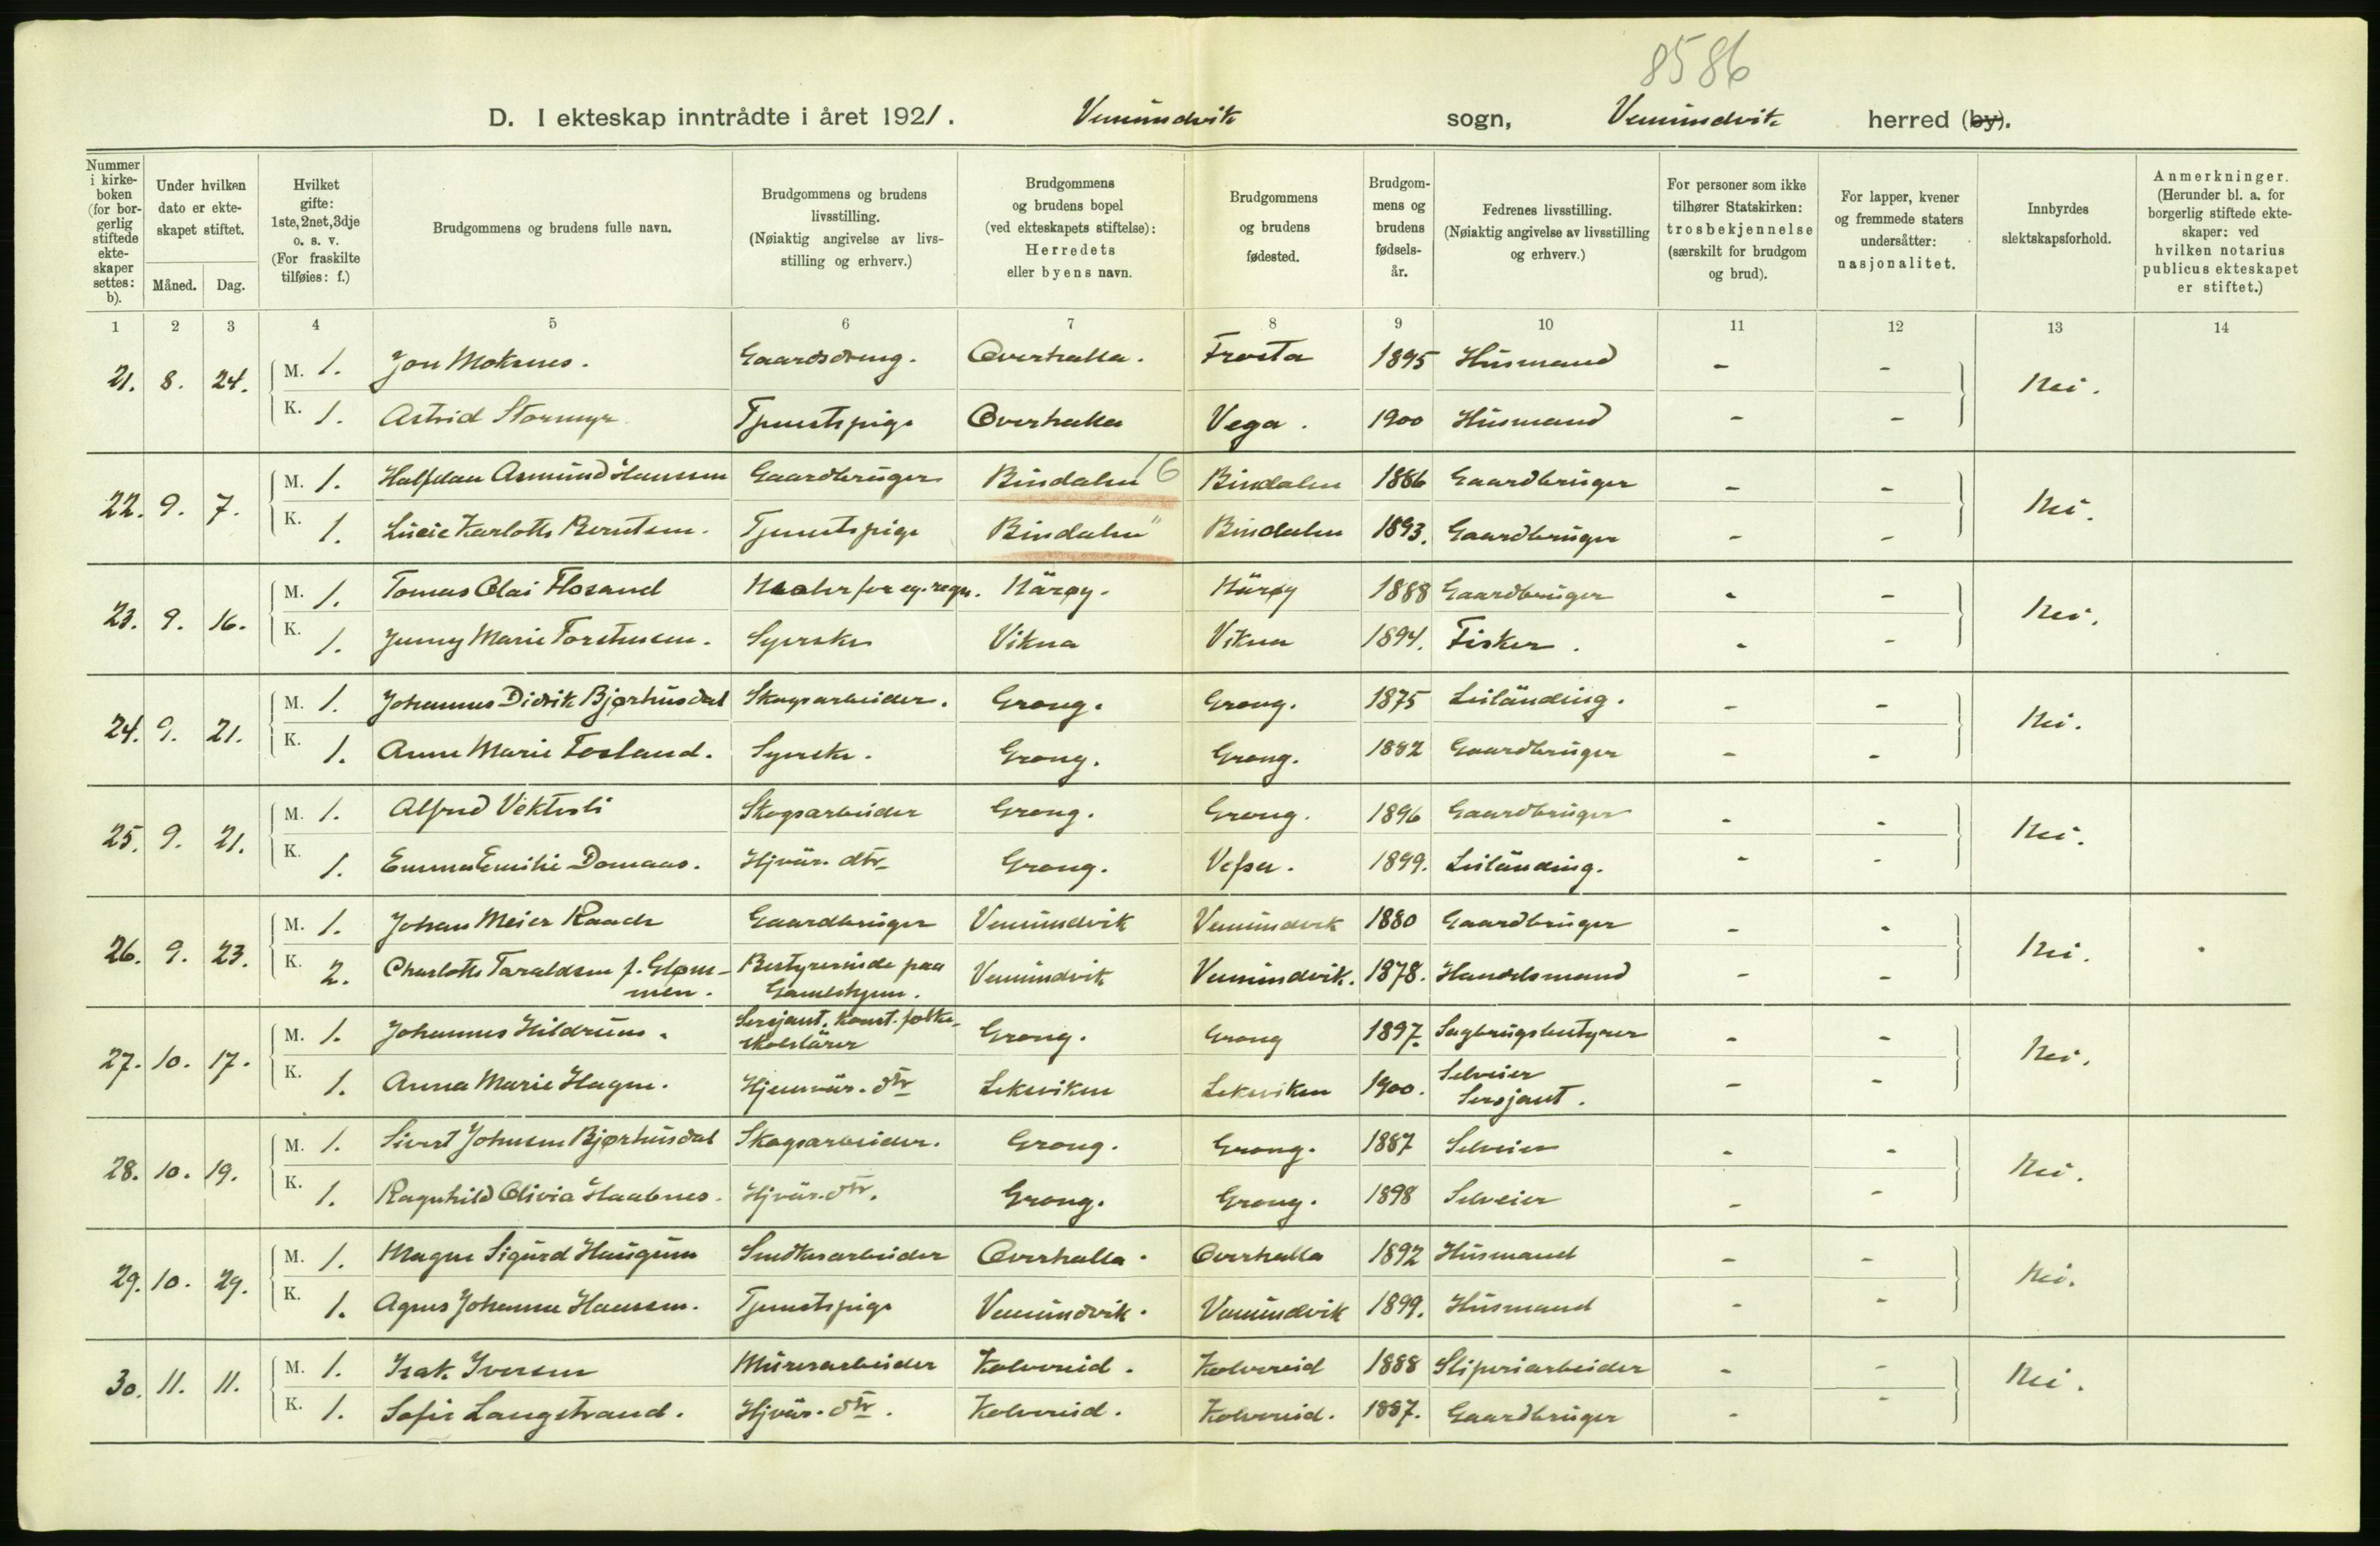 8586
D. I ekteskap inntrådte i året 1921. Vemundvik sogn, Vemundvik herred (by).
Nummer i kirke-boken (for bor-gerlig stiftede ekte-skaper settes: b).
Under hvilken dato er ekte-skapet stiftet.
Måned. Dag.
Hvilket gifte: 1ste, 2net, 3dje o. s. v. (For fraskilte tilføies: f.)
Brudgommens og brudens fulle navn.
Brudgommens og brudens livsstilling. (Nøiaktig angivelse av livs-stilling og erhverv.)
Brudgommens og brudens bopel (ved ekteskapets stiftelse): Herredets eller byens navn.
Brudgommens og brudens fødested.
Brudgom-mens og brudens fødsels-år.
Fedrenes livsstilling. (Nøiaktig angivelse av livsstilling og erhverv.)
For personer som ikke tilhører Statskirken: trosbekjennelse (særskilt for brudgom og brud).
For lapper, kvener og fremmede staters undersåtter: nasjonalitet.
Innbyrdes slektskapsforhold.
Anmerkninger. (Herunder bl. a. for borgerlig stiftede ekte-skaper: ved hvilken notarius publicus ekteskapet er stiftet.)
1 2 3 4 5 6 7 8 9 10 11 12 13 14
21. 8. 24. M. 1. Jon Moksnes. Gaardsdreng. Overhalla. Frosta 1895 Husmand - - Nei.
K. 1. Astrid Stormyr. Tjenestepige Overhalla Vega. 1900 Husmand - -
22. 9. 7. M. 1. Halfdan Asmund Hanssen Gaardbruger Bindalen 16 Bindalen 1886 Gaardbruger - - Nei.
K. 1. Lucie Karlotte Berntsen. Tjenestepige Bindalen " Bindalen 1893. Gaardbruger - -
23. 9. 16. M. 1. Tomas Olai Flosand for eg. regn. Närøy. Närøy 1888 Gaardbruger - - Nei.
K. 1. Jenny Marie Torstensen. Syerske Vikna Vikna 1894. Fisker. - -
24. 9. 21. M. 1. Johannes Didrik Bjørhusdal Skogsarbeider. Grong. Grong. 1875 Leiländing. - - Nei.
K. 1. Anne Marie Fosland. Syerske. Grong. Grong. 1882 Gaardbruger - -
25. 9. 21. M. 1. Alfred Vekterli Skogsarbeider Grong. Grong. 1896 Gaardbruger - - Nei.
K. 1. Emma Emilie Domaas. Hjvär. dtr Grong. Vefsn. 1899. Leiländing. - -
26. 9. 23. M. 1. Johan Meier Raade Gaardbruger Vemundvik Vemundvik 1880 Gaardbruger - - Nei.
K. 2. Charlotte Taraldsen f. Gløm-men. Bestyrerinde paa Gamlehjem. Vemundvik Vemundvik. 1878. Handelsmand - -
27. 10. 17. M. 1. Johannes Hildrum. Sersjant. Konst. folke-skolelärer Grong. Grong 1897. Sagbrugsbestyrer - - Nei.
K. 1. Anna Marie Hagen. Hjemvär. dtr Leksviken Leksviken 1900. Selveier Sersjant. - -
28. 10. 19. M. 1. Sivert Johnsen Bjørhusdal Skogsarbeider. Grong. Grong. 1887 Selveier - - Nei.
K. 1. Ragnhild Olivia Haabnes. Hjvär. dtr. Grong. Grong. 1898 Selveier - -
29. 10. 29. M. 1. Magne Sigurd Haugum Snedkerarbeider Overhalla. Overhalla 1892 Husmand - - Nei.
K. 1. Agnes Johanne Hanssen. Tjenestepige Vemundvik. Vemundvik 1899. Husmand - -
30. 11. 11. M. 1. Isak Iversen Murerarbeider Kolvereid. Kolvereid 1888 Sliperiarbeider - - Nei.
K. 1. Sofie Langstrand. Hjvär. dtr. Kolvereid. Kolvereid. 1887. Gaardbruger - -